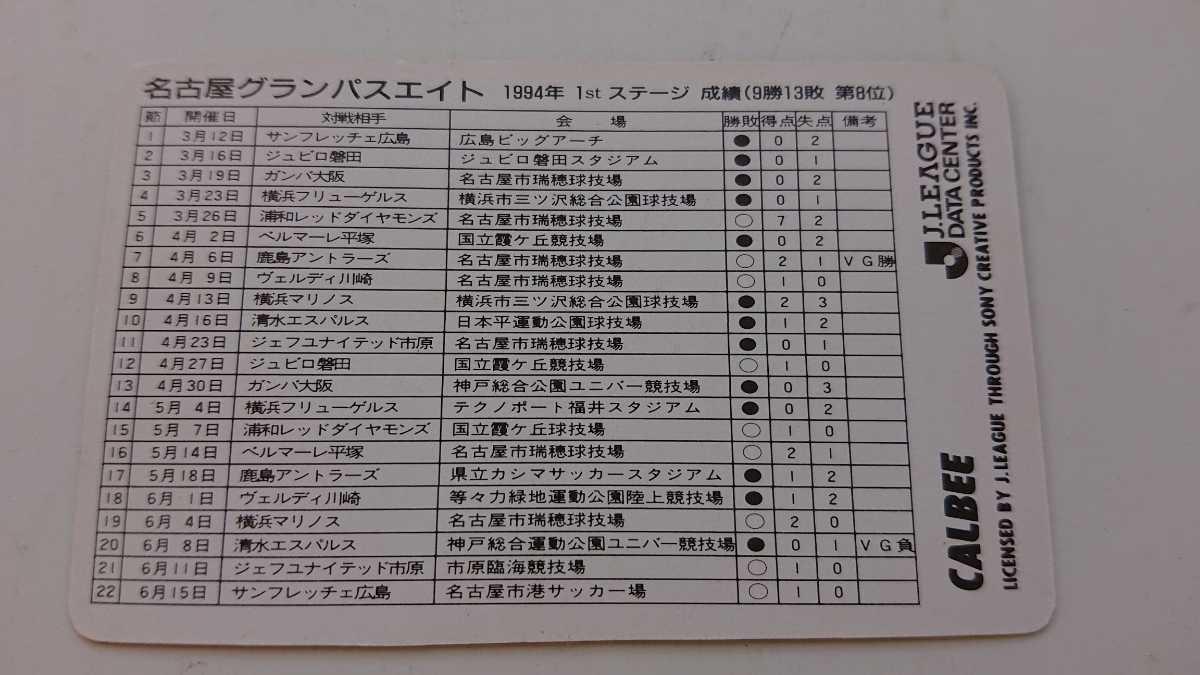 名古屋グランパスエイト 1994年 1st ステージ 成績(9勝13敗 第8位)
節 開催日 対戦相手 会場 勝敗 得点 失点 備考
1 3月12日 サンフレッチェ広島 広島ビッグアーチ ● 0 2
2 3月16日 ジュビロ磐田 ジュビロ磐田スタジアム ● 0 1
3 3月19日 ガンバ大阪 名古屋市瑞穂球技場 ● 0 2
4 3月23日 横浜フリューゲルス 横浜市三ツ沢総合公園球技場 ● 0 1
5 3月26日 浦和レッドダイヤモンズ 名古屋市瑞穂球技場 ○ 7 2
6 4月 2日 ベルマーレ平塚 国立霞ケ丘競技場 ● 0 2
7 4月 6日 鹿島アントラーズ 名古屋市瑞穂球技場 ○ 2 1 VG勝
8 4月 9日 ヴェルディ川崎 名古屋市瑞穂球技場 ○ 1 0
9 4月13日 横浜マリノス 横浜市三ツ沢総合公園球技場 ● 2 3
10 4月16日 清水エスパルス 日本平運動公園球技場 ● 1 2
11 4月23日 ジェフユナイテッド市原 名古屋市瑞穂球技場 ● 0 1
12 4月27日 ジュビロ磐田 国立霞ケ丘競技場 ○ 1 0
13 4月30日 ガンバ大阪 神戸総合公園ユニバー競技場 ● 0 3
14 5月 4日 横浜フリューゲルス テクノポート福井スタジアム ● 0 2
15 5月 7日 浦和レッドダイヤモンズ 国立霞ケ丘球技場 ○ 1 0
16 5月14日 ベルマーレ平塚 名古屋市瑞穂球技場 ○ 2 1
17 5月18日 鹿島アントラーズ 県立カシマサッカースタジアム ● 1 2
18 6月 1日 ヴェルディ川崎 等々力緑地運動公園陸上競技場 ● 1 2
19 6月 4日 横浜マリノス 名古屋市瑞穂球技場 ○ 2 0
20 6月 8日 清水エスパルス 神戸総合運動公園ユニバー競技場 ● 0 1 VG負
21 6月11日 ジェフユナイテッド市原 市原臨海競技場 ○ 1 0
22 6月15日 サンフレッチェ広島 名古屋市港サッカー場 ○ 1 0
CALBEE
J.LEAGUE
DATA CENTER
LICENSED BY J.LEAGUE THROUGH SONY CREATIVE PRODUCTS INC.